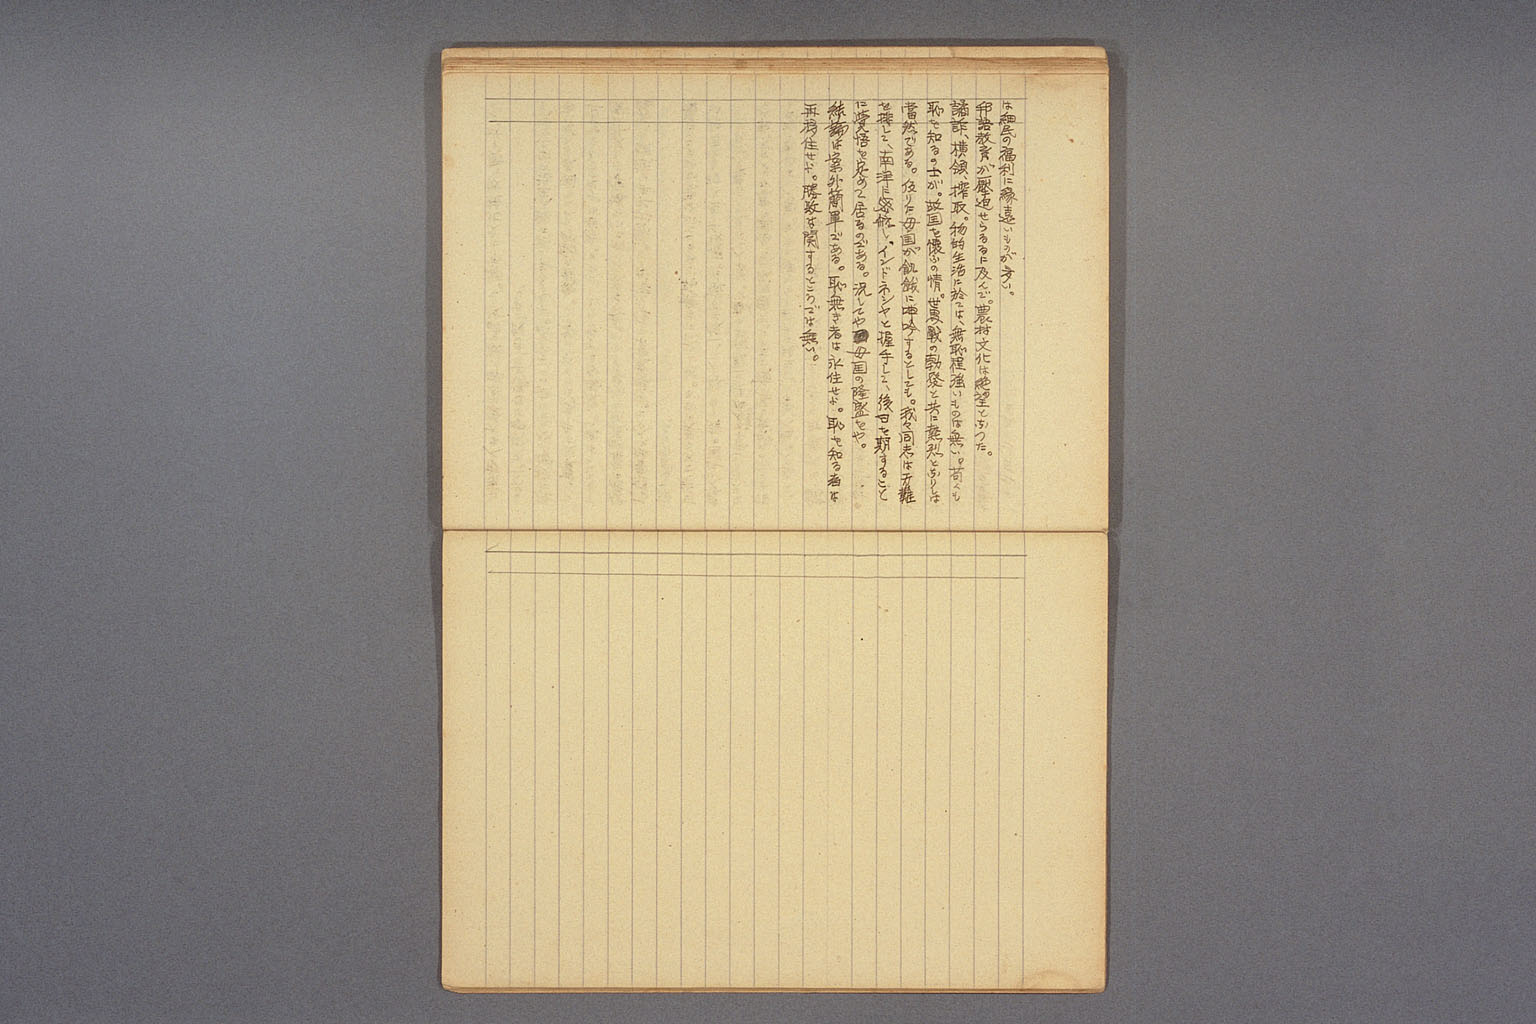 は細民の福利に縁遠いものが多い。
邦語教育が壓迫せらるるに及んで。農村文化は絶望となつた。
譎詐、横領、搾取。物的生活に於ては、無恥程強いものは無い。苟くも
恥を知るの士が。故国を懐ふの情。世界戰の勃發と共に熱烈となりしは
當然である。仮りに母国が飢餓に呻吟するとしても。我々同志は万難
を排して、南洋に し、インドネシヤと握手して、後日を期すること
に覚悟を定めて居るのである。況してや母国の隆盛をや。
結論は案外簡單である。恥無き者は永住せよ。恥を知る者は
再移住せよ。勝敗は関するところでは無い。